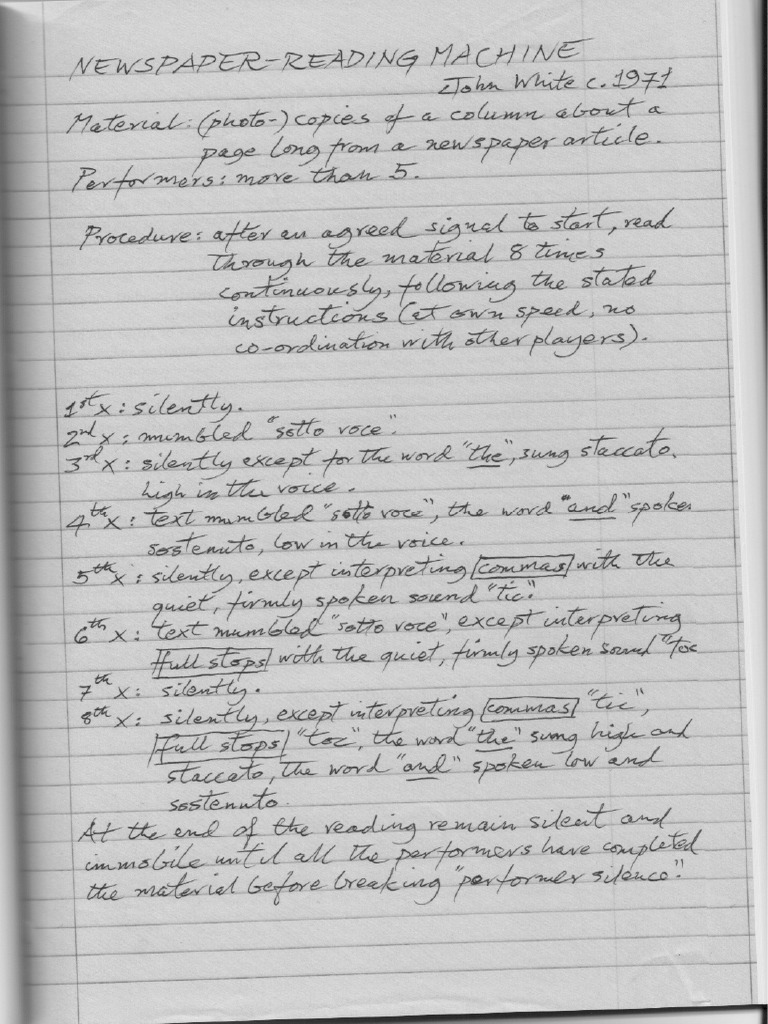 NEWSPAPER-READING MACHINE
John White c. 1971
Material: (photo-) copies of a column about a
page long from a newspaper article.
Performers: more than 5.
Procedure: after an agreed signal to start, read
through the material 8 times
continuously, following the stated
instructions (at own speed, no
co-ordination with other players).
1st x: silently.
2nd x: mumbled "sotto voce".
3rd x: silently except for the word "the", sung staccato,
high in the voice.
4th x: text mumbled "sotto voce", the word "and" spoken
sostenuto, low in the voice.
5th x: silently, except interpreting commas with the
quiet, firmly spoken sound "tic".
6th x: text mumbled "sotto voce", except interpreting
full stops with the quiet, firmly spoken sound "toc
7th x: silently.
8th x: silently, except interpreting commas "tic",
full stops "toc", the word "the" sung high and
staccato, the word "and" spoken low and
sostenuto.
At the end of the reading remain silent and
immobile until all the performers have completed
the material before breaking "performer silence".